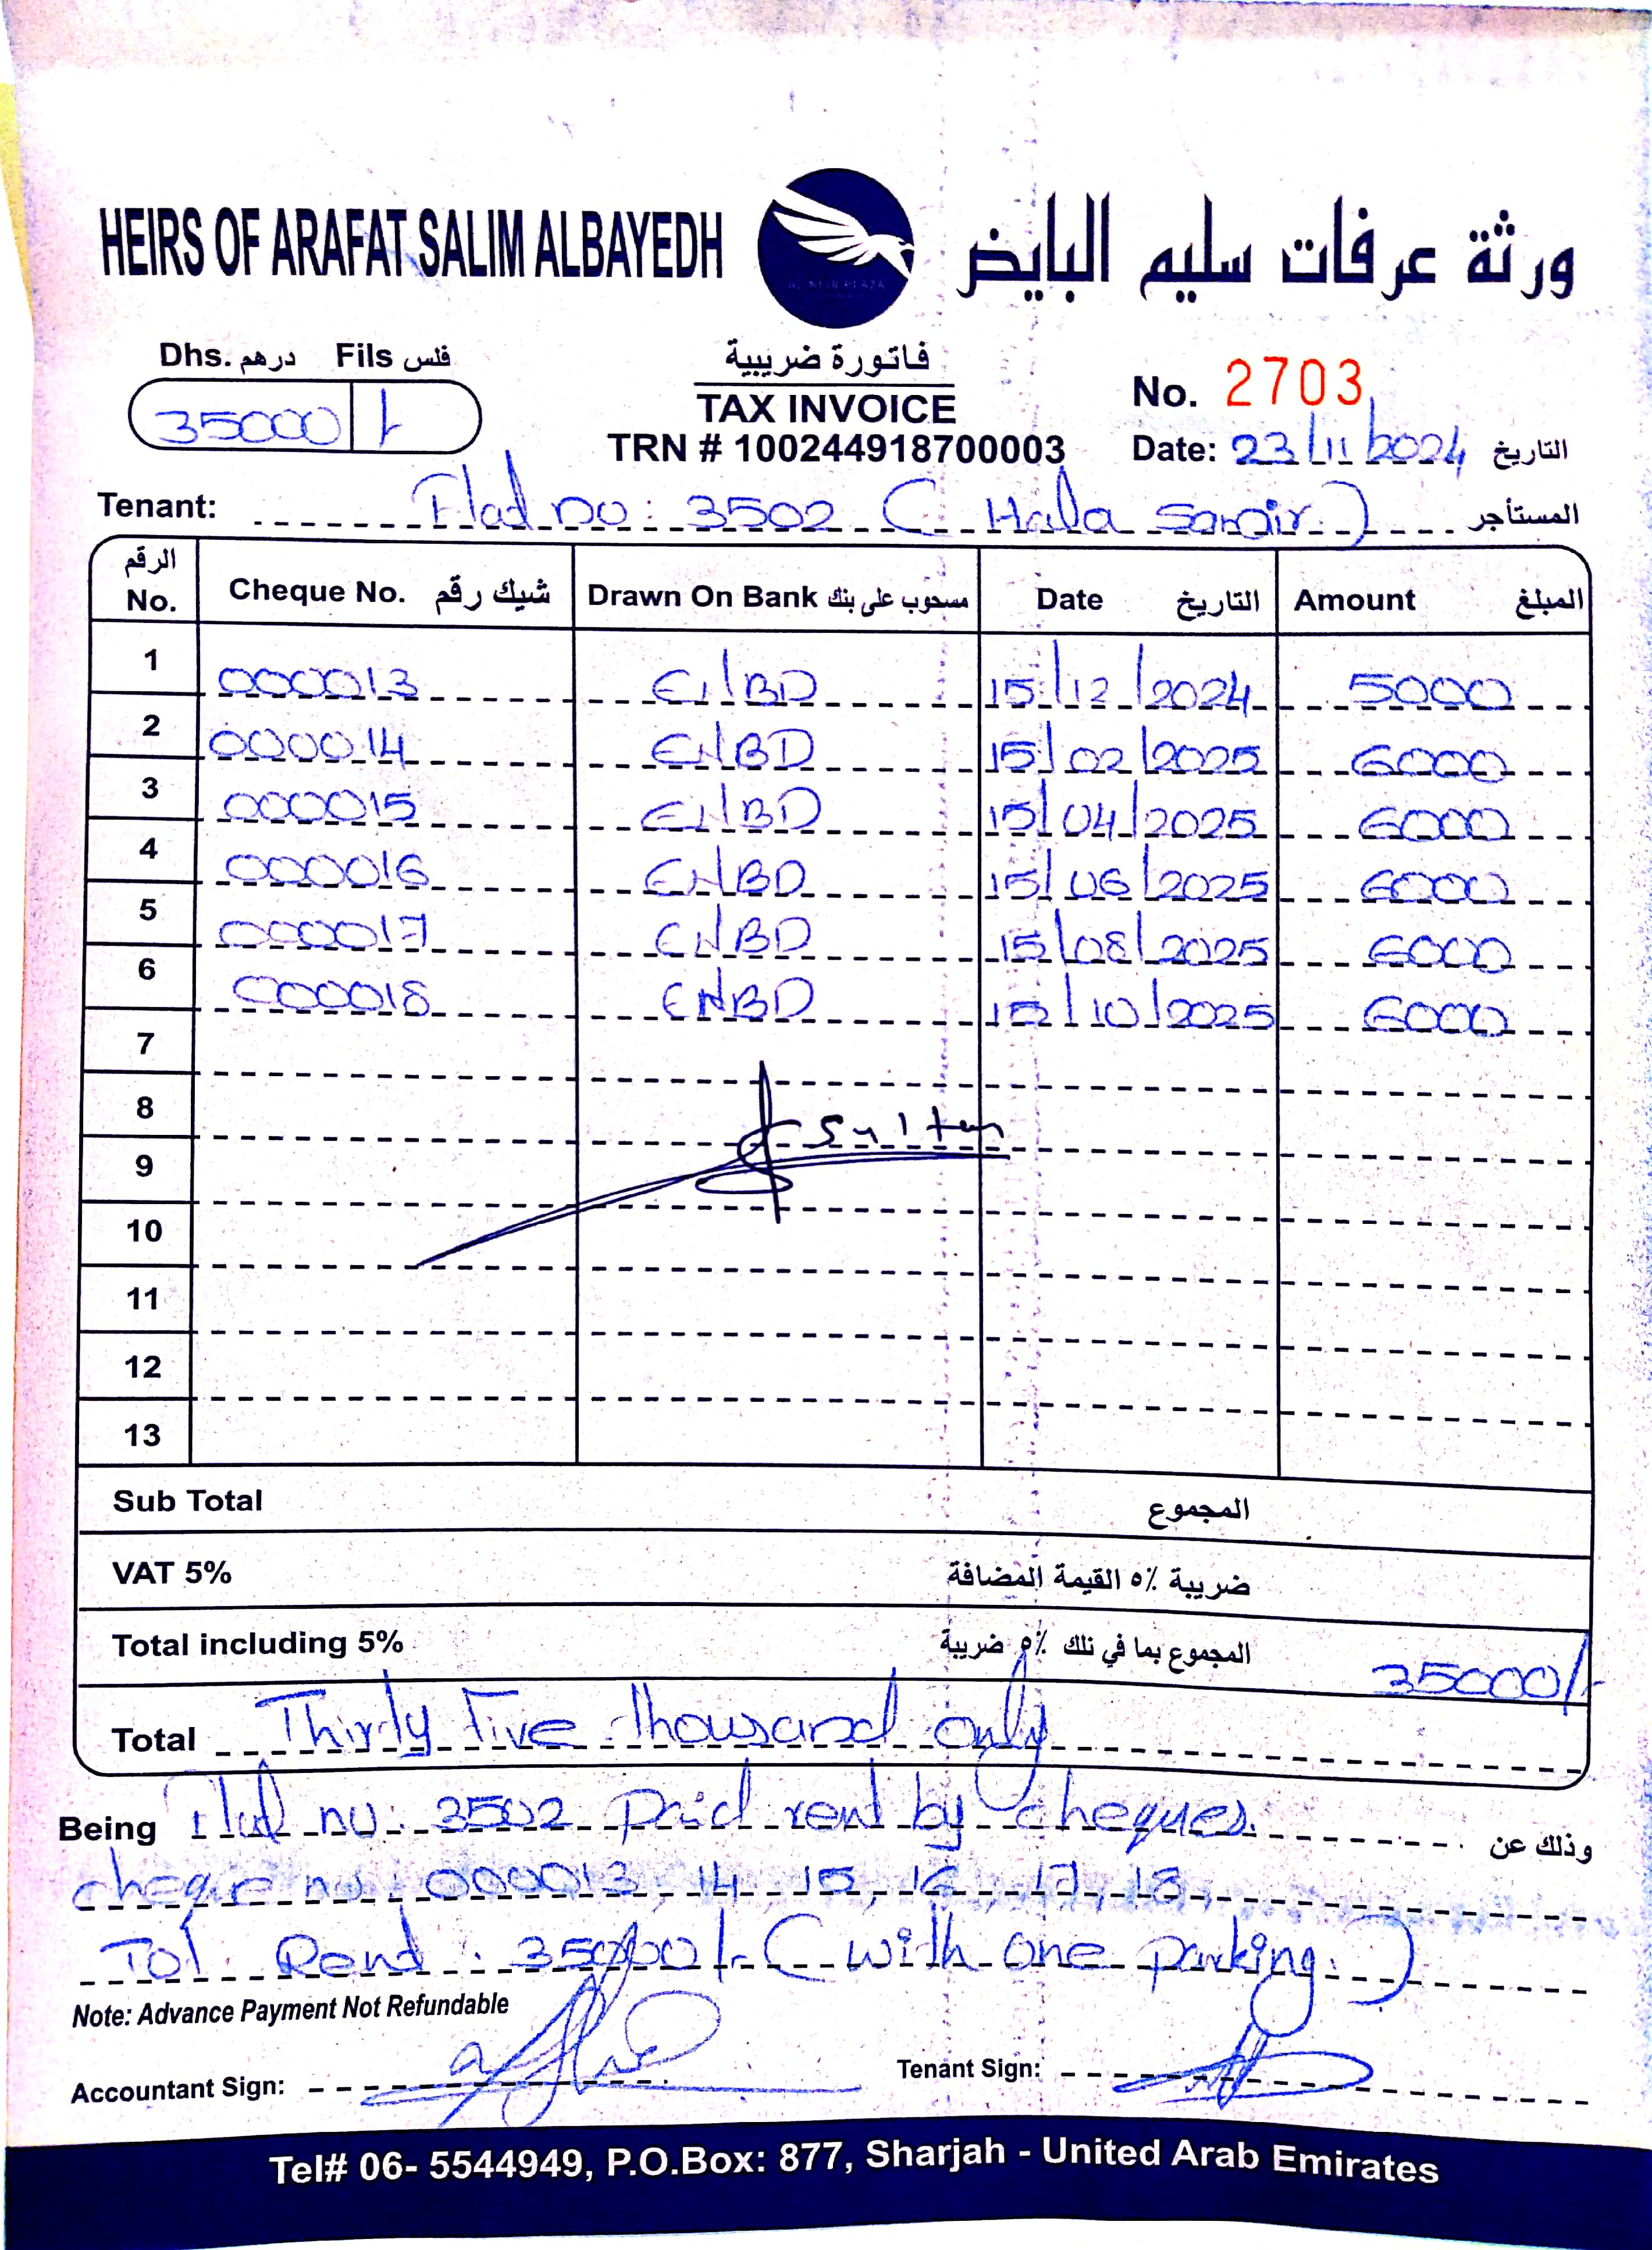 HEIRS OF ARAFAT SALIM ALBAYEDH
ورثة عرفات سليم البايض
Dhs. درهم Fils فلس
35000 /-
فاتورة ضريبية
TAX INVOICE
TRN # 100244918700003
No. 2703
Date: 23/11/2024 التاريخ
Tenant: Flat no: 3502 (Hala Samir) المستأجر
الرقم No. Cheque No. شيك رقم Drawn On Bank مسحوب على بنك Date التاريخ Amount المبلغ
1 000013 ENBD 15/12/2024 5000
2 000014 ENBD 15/02/2025 6000
3 000015 ENBD 15/04/2025 6000
4 000016 ENBD 15/06/2025 6000
5 000017 ENBD 15/08/2025 6000
6 000018 ENBD 15/10/2025 6000
7
8 Sultan
9
10
11
12
13
Sub Total المجموع
VAT 5% ضريبة ٥٪ القيمة المضافة
Total including 5% المجموع بما في ذلك ٥٪ ضريبة 35000/-
Total Thirty Five thousand only
Being Flat no. 3502 Paid rent by cheques. وذلك عن
cheque no. 000013, 14, 15, 16, 17, 18
Tol Rent: 35000/- (with one parking.)
Note: Advance Payment Not Refundable
Accountant Sign:
Tenant Sign:
Tel# 06- 5544949, P.O.Box: 877, Sharjah - United Arab Emirates